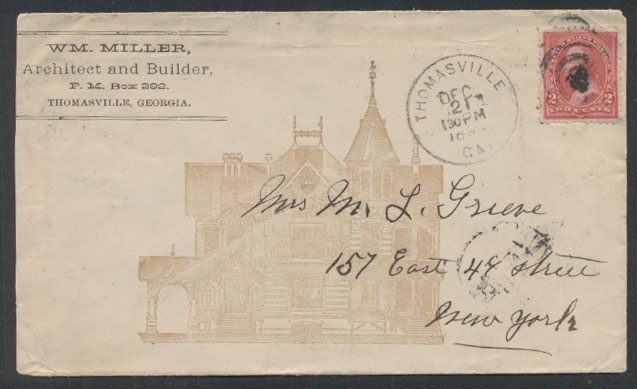 WM. MILLER,
Architect and Builder,
P. M. Box 292.
THOMASVILLE, GEORGIA.
THOMASVILLE
DEC
21
130PM
GA.
2 2
Mrs M. L. Grieve
157 East 47 Street
New York